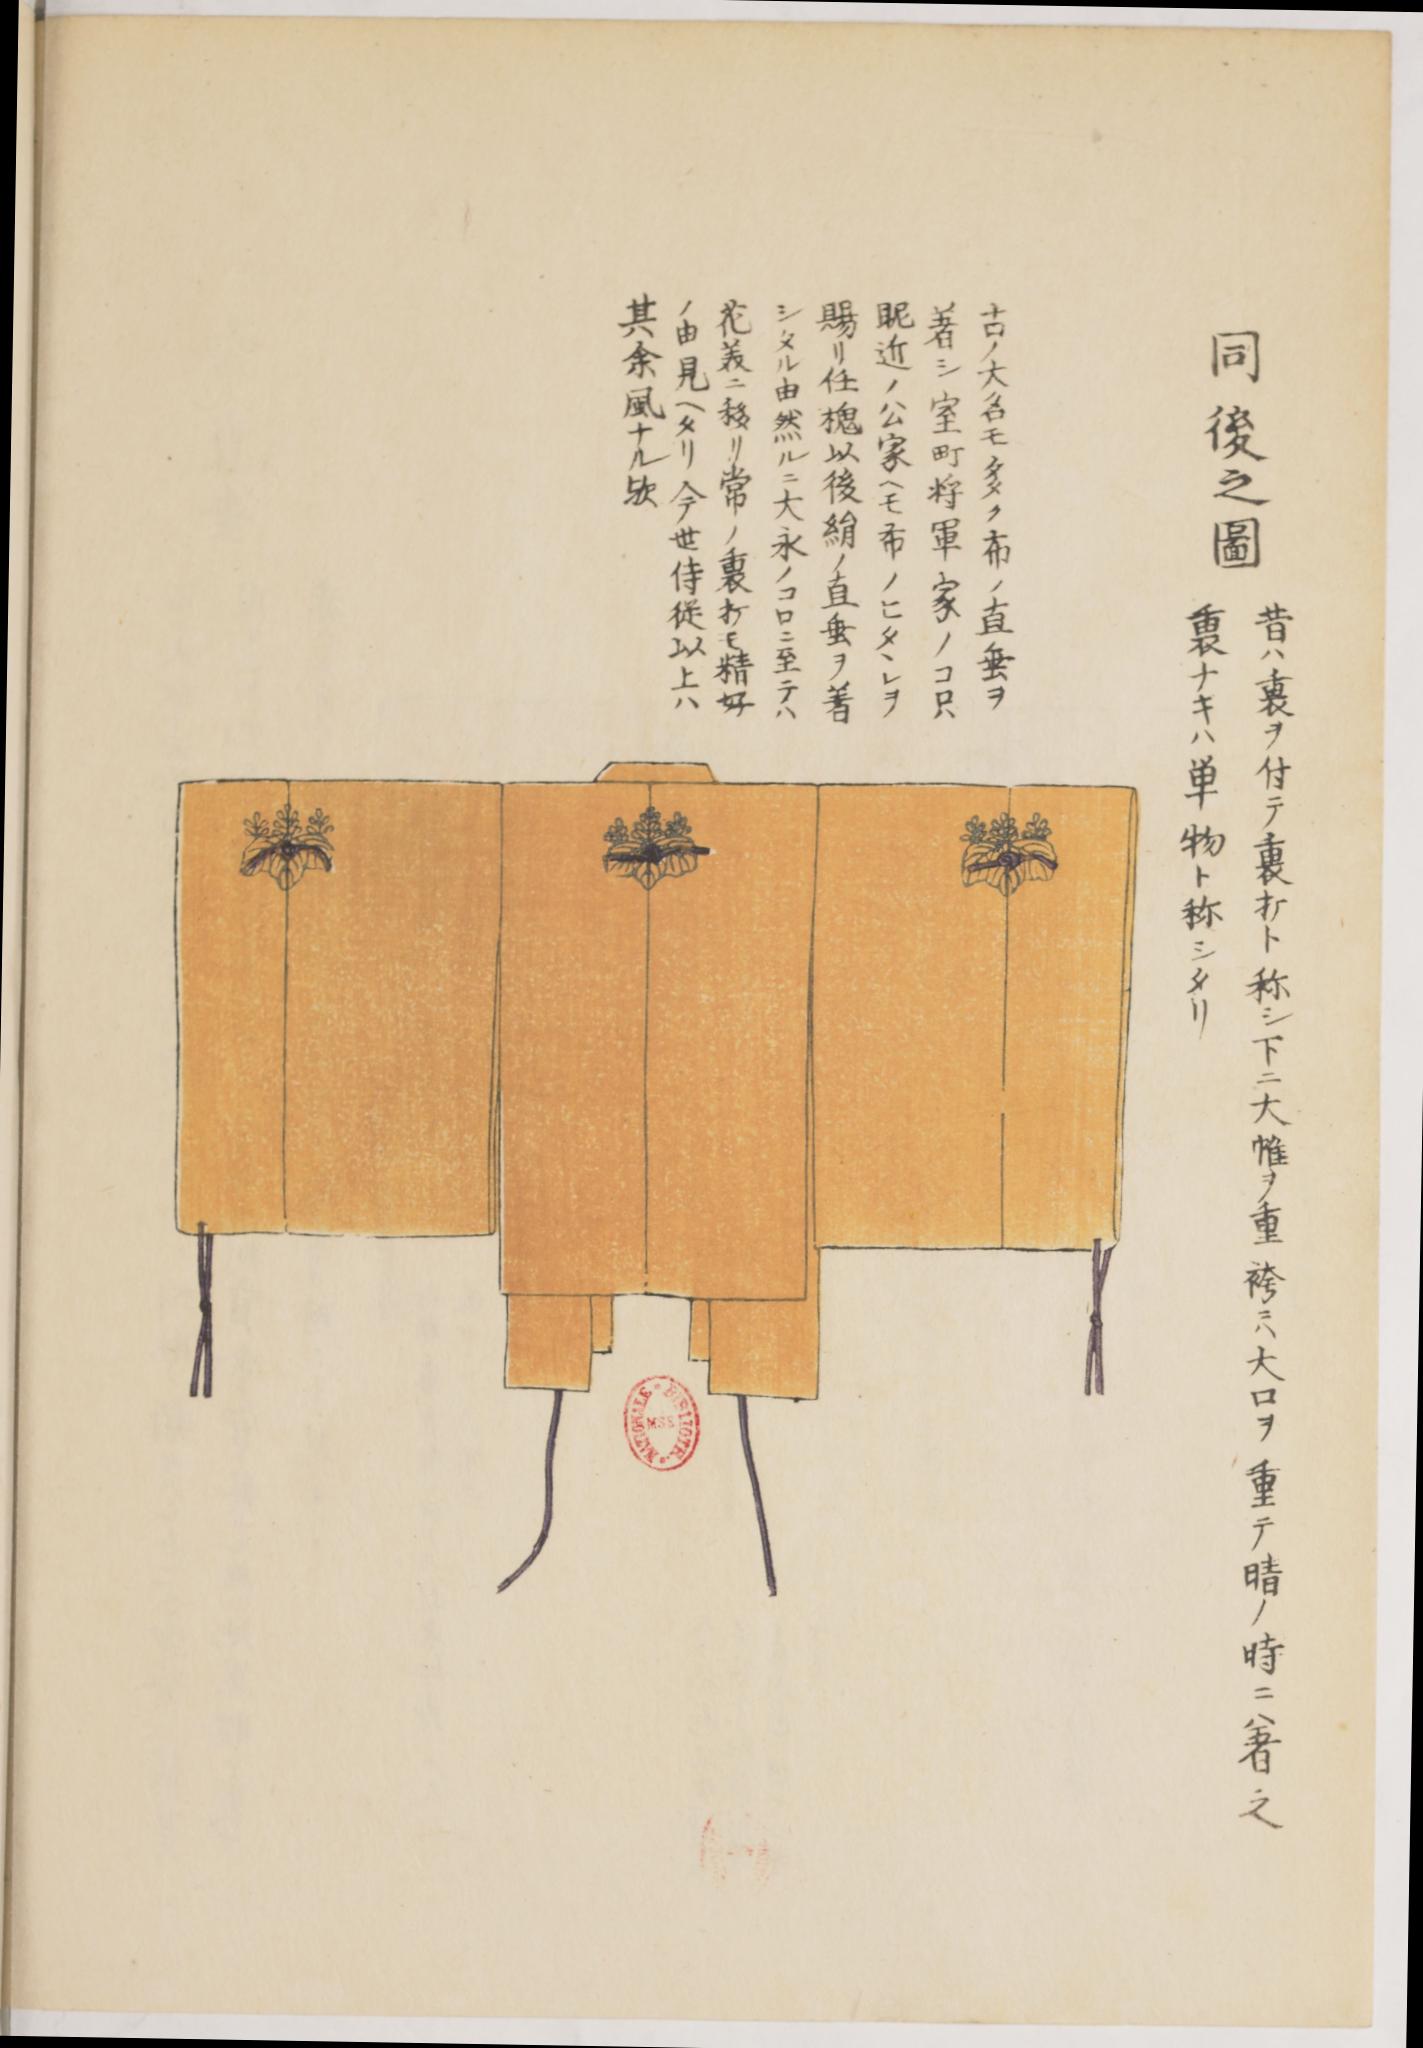 同後之圖
昔ハ裏ヲ付テ裏打ト称シ下ニ大帷ヲ重袴ニハ大口ヲ重テ晴ノ時ニハ著之
裏ナキハ単物ト称シタリ
古ノ大名モ多ク布ノ直垂ヲ
著シ室町将軍家ノコロハ
昵近ノ公家ヘモ布ノヒタヽレヲ
賜リ任槐以後絹ノ直垂ヲ著
シタル由然ルニ大永ノコロニ至テハ
花美ニ移リ常ノ裏打モ精好
ノ由見ヘタリ今世侍従以上ハ
其余風ナル歟
BIBLIOTH. NATIONALE
MSS